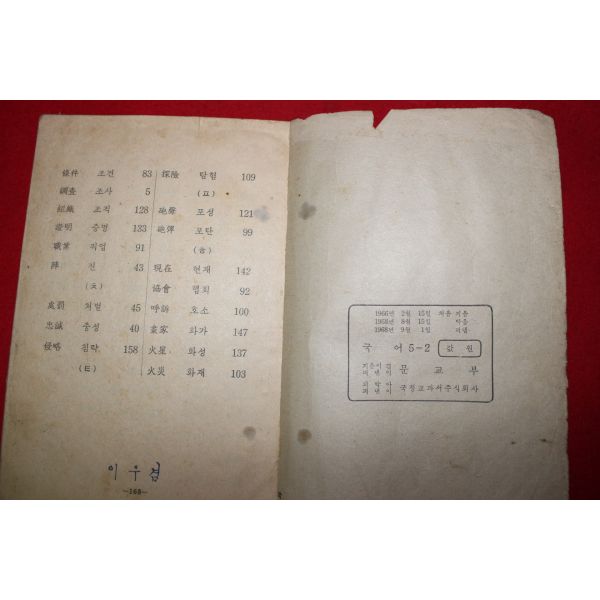 條件 조건 83
調査 조사 5
組織 조직 128
證明 증명 133
職業 직업 91
陣 진 43
(ㅊ)
處罰 처벌 45
忠誠 충성 40
侵略 침략 158
(ㅌ)
探險 탐험 109
(ㅍ)
砲聲 포성 121
砲彈 포탄 99
(ㅎ)
現在 현재 142
協會 협회 92
呼訴 호소 100
畫家 화가 147
火星 화성 137
火災 화재 103
이우겸
—168—
1966년 2월 15일 처음 지음
1968년 8월 15일 박음
1968년 9월 1일 펴냄
국어 5-2 값 원
지은이 겸 펴낸이 문교부
국정교과서주식회사